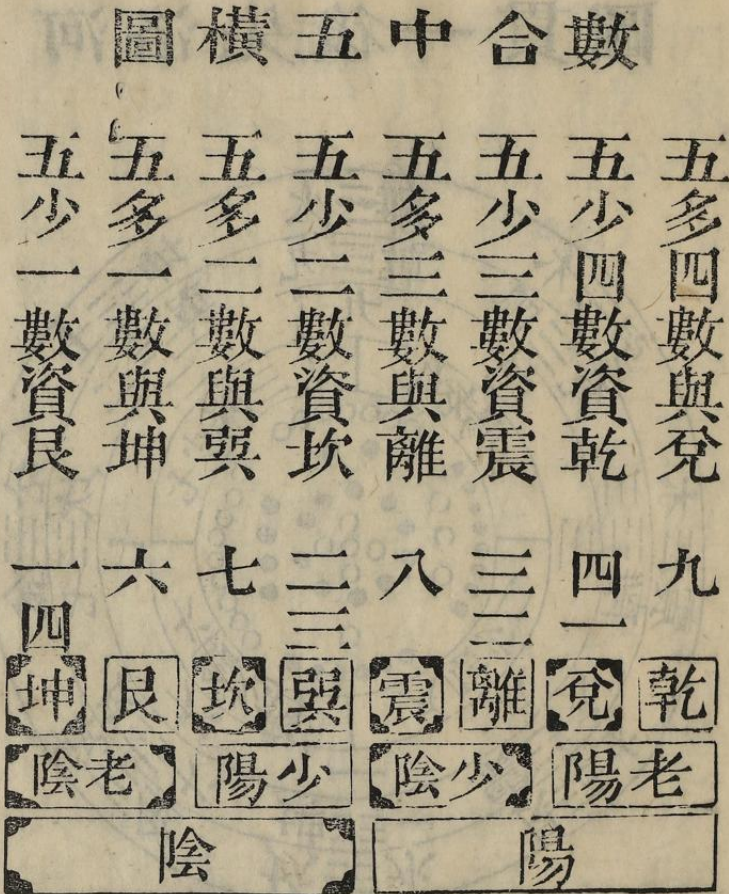 數合中五橫圖
五多四數與兌
五少四數資乾
五少三數資震
五多三數與離
五少二數資坎
五多二數與巽
五多一數與坤
五少一數資艮
九
四一
三二
八
二三
七
六
一四
乾
兌
離
震
巽
坎
艮
坤
老陽
少陰
少陽
老陰
陽
陰